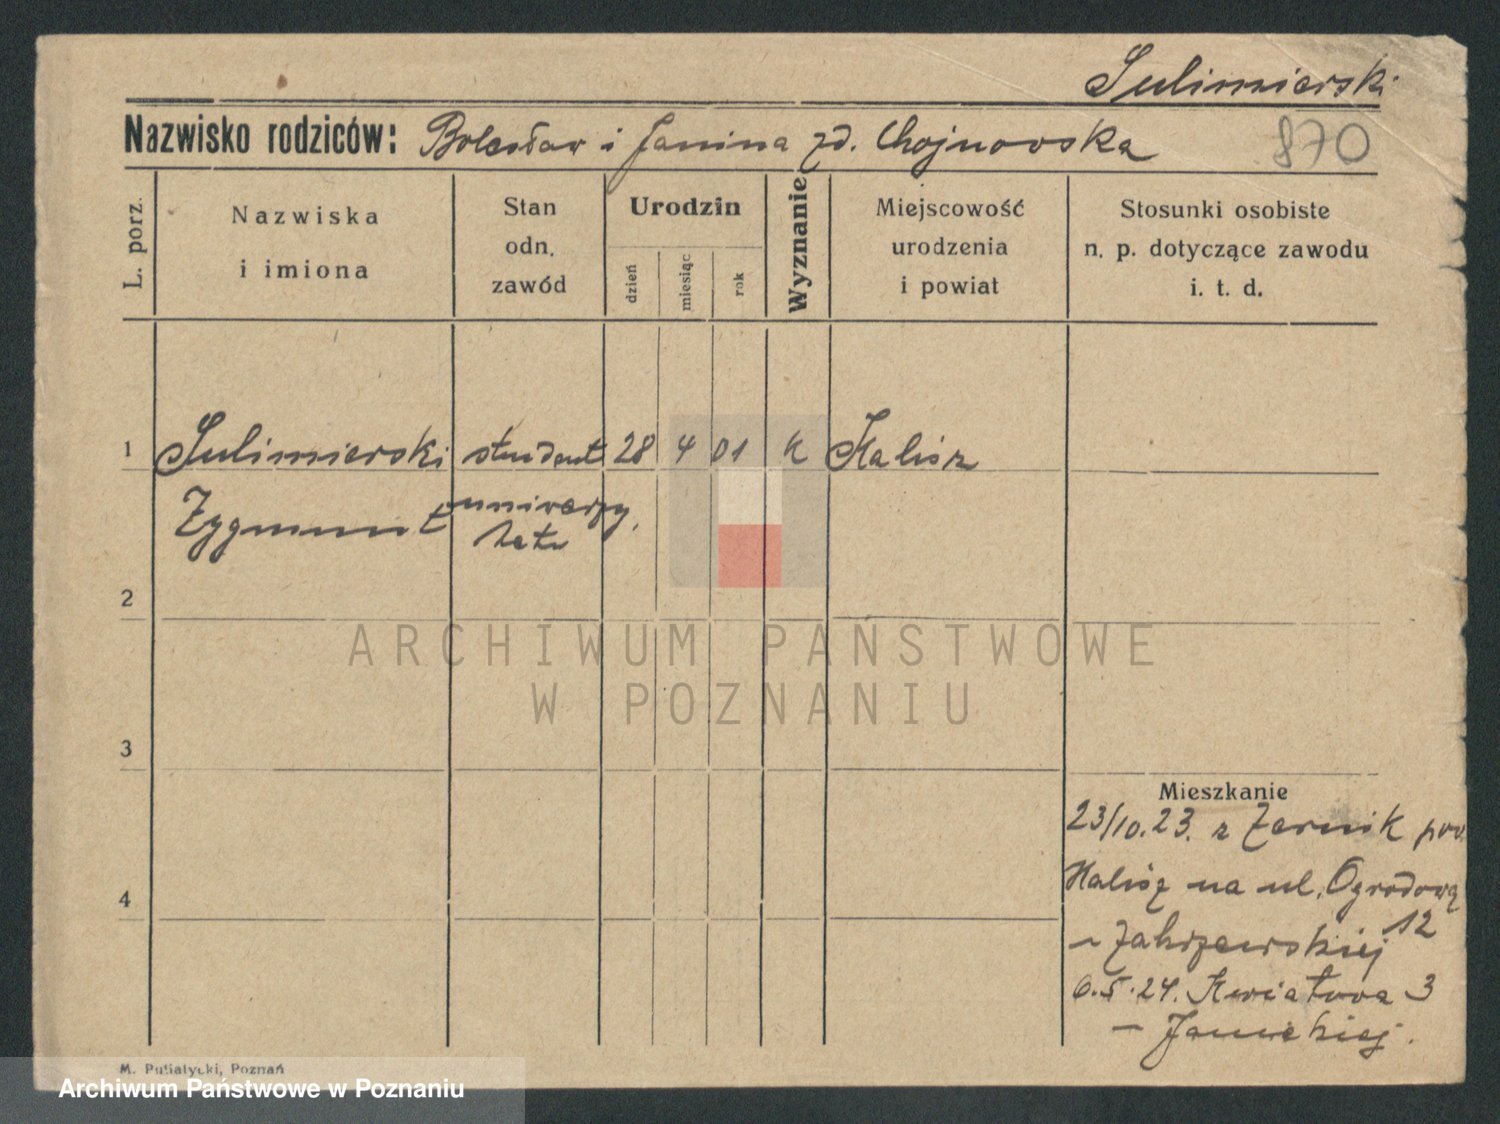 Sulimierski
Nazwisko rodziców: Bolesław i Janina zd. Chojnowska 870
L. porz.
Nazwiska
i imiona
Stan
odn.
zawód
Urodzin
dzień
miesiąc
rok
Wyznanie
Miejscowość
urodzenia
i powiat
Stosunki osobiste
n. p. dotyczące zawodu
i. t. d.
1 Sulimierski student 28 4 01 k Kalisz
Zygmunt uniwerzy,
tetu
2
ARCHIWUM PAŃSTWOWE
W POZNANIU
3
Mieszkanie
23/10.23. z Żernik pow.
4
Kalisz na ul. Ogrodową
12
~ Zakrzewskiej
6.5.24. Kwiatowa 3
~ Janickiej.
M. Putiatycki, Poznań
Archiwum Państwowe w Poznaniu